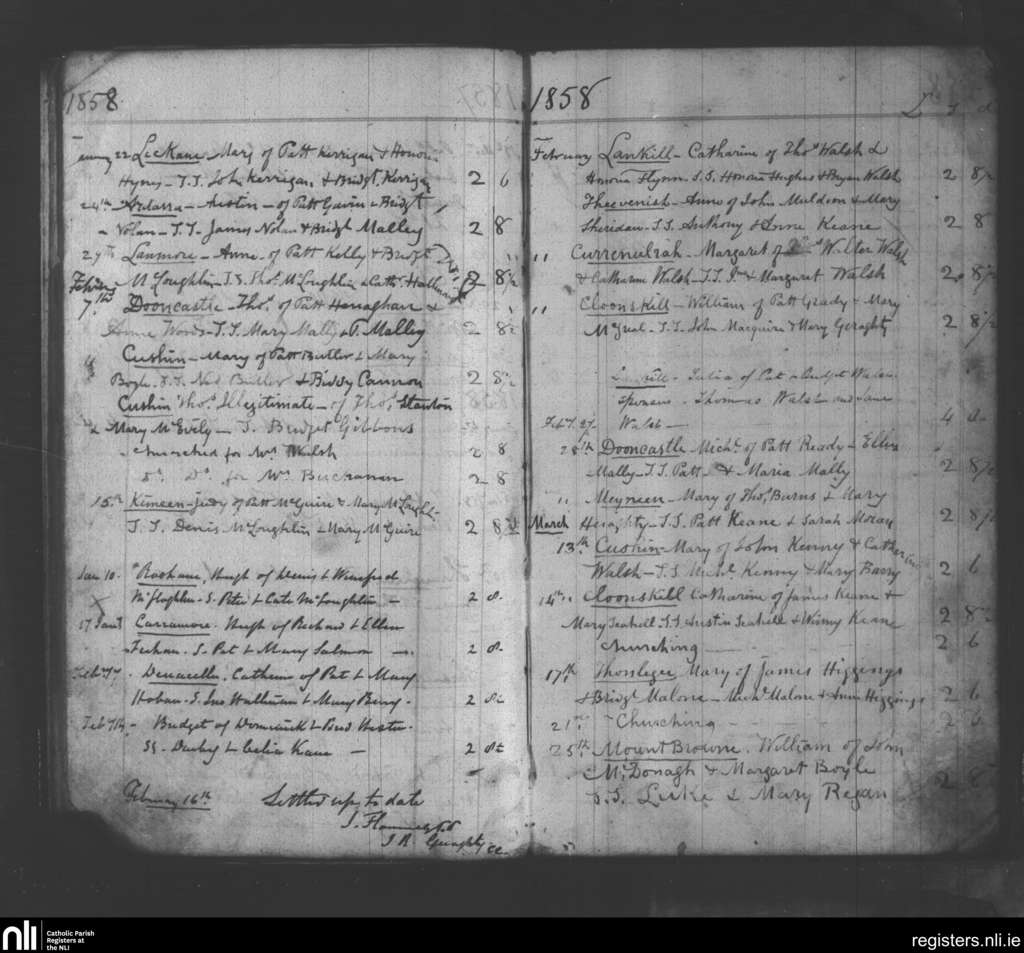 1858
January 22 Leckane - Mary of Patt Kerrigan & Honor
Hynes - S.S. John Kerrigan & Bridgt. Kerrigan 2 6
24th Ardarra - Austin - of Patt Gavin & Bridgt
Nolan - S.S. James Nolan & Bridgt Malley 2 8
27th Lanmore - Anne - of Patt Kelly & Bridgt
McLoughlin - S.S. Thos. McLoughlin & Cath. 2 8½
February 7th Dooncastle - Thos. of Patt Heraghan &
Anne Words - S.S. Mary Mally & T. Malley 2 8½
Cushin - Mary of Patt Butler & Mary
Boyle. S.S. Ned Butler & Biddy Cannon 2 8½
Cushin Thos. Illegitimate - of Thos. Stanton
& Mary McEvely - S. Bridget Gibbons
churched for Mrs Walsh 2 8
do. Do. for Mrs Buchanan 2 8
15th Kimeen - Judy of Patt McGuire & Mary McLoughl-
S.S. Denis McLoughlin & Mary McGuire 2 8½
Jan 10. Roohane, Hugh of Denis & Winefred
McLoughlin - S. Peter & Cate McLoughlin - 2 8.
17 Jany Carramore. Hugh of Richard & Ellen
Feehan. S. Pat & Mary Salmon - 2 8.
Feb 7 Catherine of Pat & Mary
Hoban - S. Jno & Mary Berry - 2 8½
Feb 14, - Bridget of Dominick & Brid
SS. Darby & Celia Kane - 2 8½
February 16th Settled up to date
J. Geraghty CC
1858
£ s d
February Lankill - Catharine of Thos Walsh &
Honoria Flynn S.S. Honoria Hughes & Bryan Walsh 2 8½
Theevenish - Anne of John Muldoon & Mary
Sheridan - S.S. Anthony & Anne Keane 2 8
" " Currencrah - Margaret of Walter Walsh
& Catharine Walsh - S.S. & Margaret Walsh 2 8½
" " Cloonskill - William of Patt Grady & Mary
S.S. John Macguire & Mary Geraghty 2 8½
Lankill - Julia of Pat & Bridget Walsh
Sponsors - Thomas Walsh and Jane
Feb. 27 Walsh - 4 0
28th Dooncastle Michl. of Patt Ready & Ellen
Mally - S.S. Patt & Maria Mally 2 8½
" Meyneen - Mary of Thos. Burns & Mary
March Heraghty - S.S. Patt Keane & Sarah Moran 2 8½
13th Cushin - Mary of John Kenny & Catherine
Walsh - S.S. Michl. Kenny & Mary Barry 2 6
14th. Cloonskill Catharine of James Keane &
Mary S.S. Austin & Winny Keane 2 8½
Churching 2 6
17th Thornlegee Mary of James Higgings
& Bridgt Malone - Michl Malone & Anne Higgings 2 6
21st Churching - 2
25th Mount Browne. William of John
McDonagh & Margaret Boyle
S.S. Luke & Mary Regan 2 8
nli Catholic Parish
Registers at
the NLI
registers.nli.ie